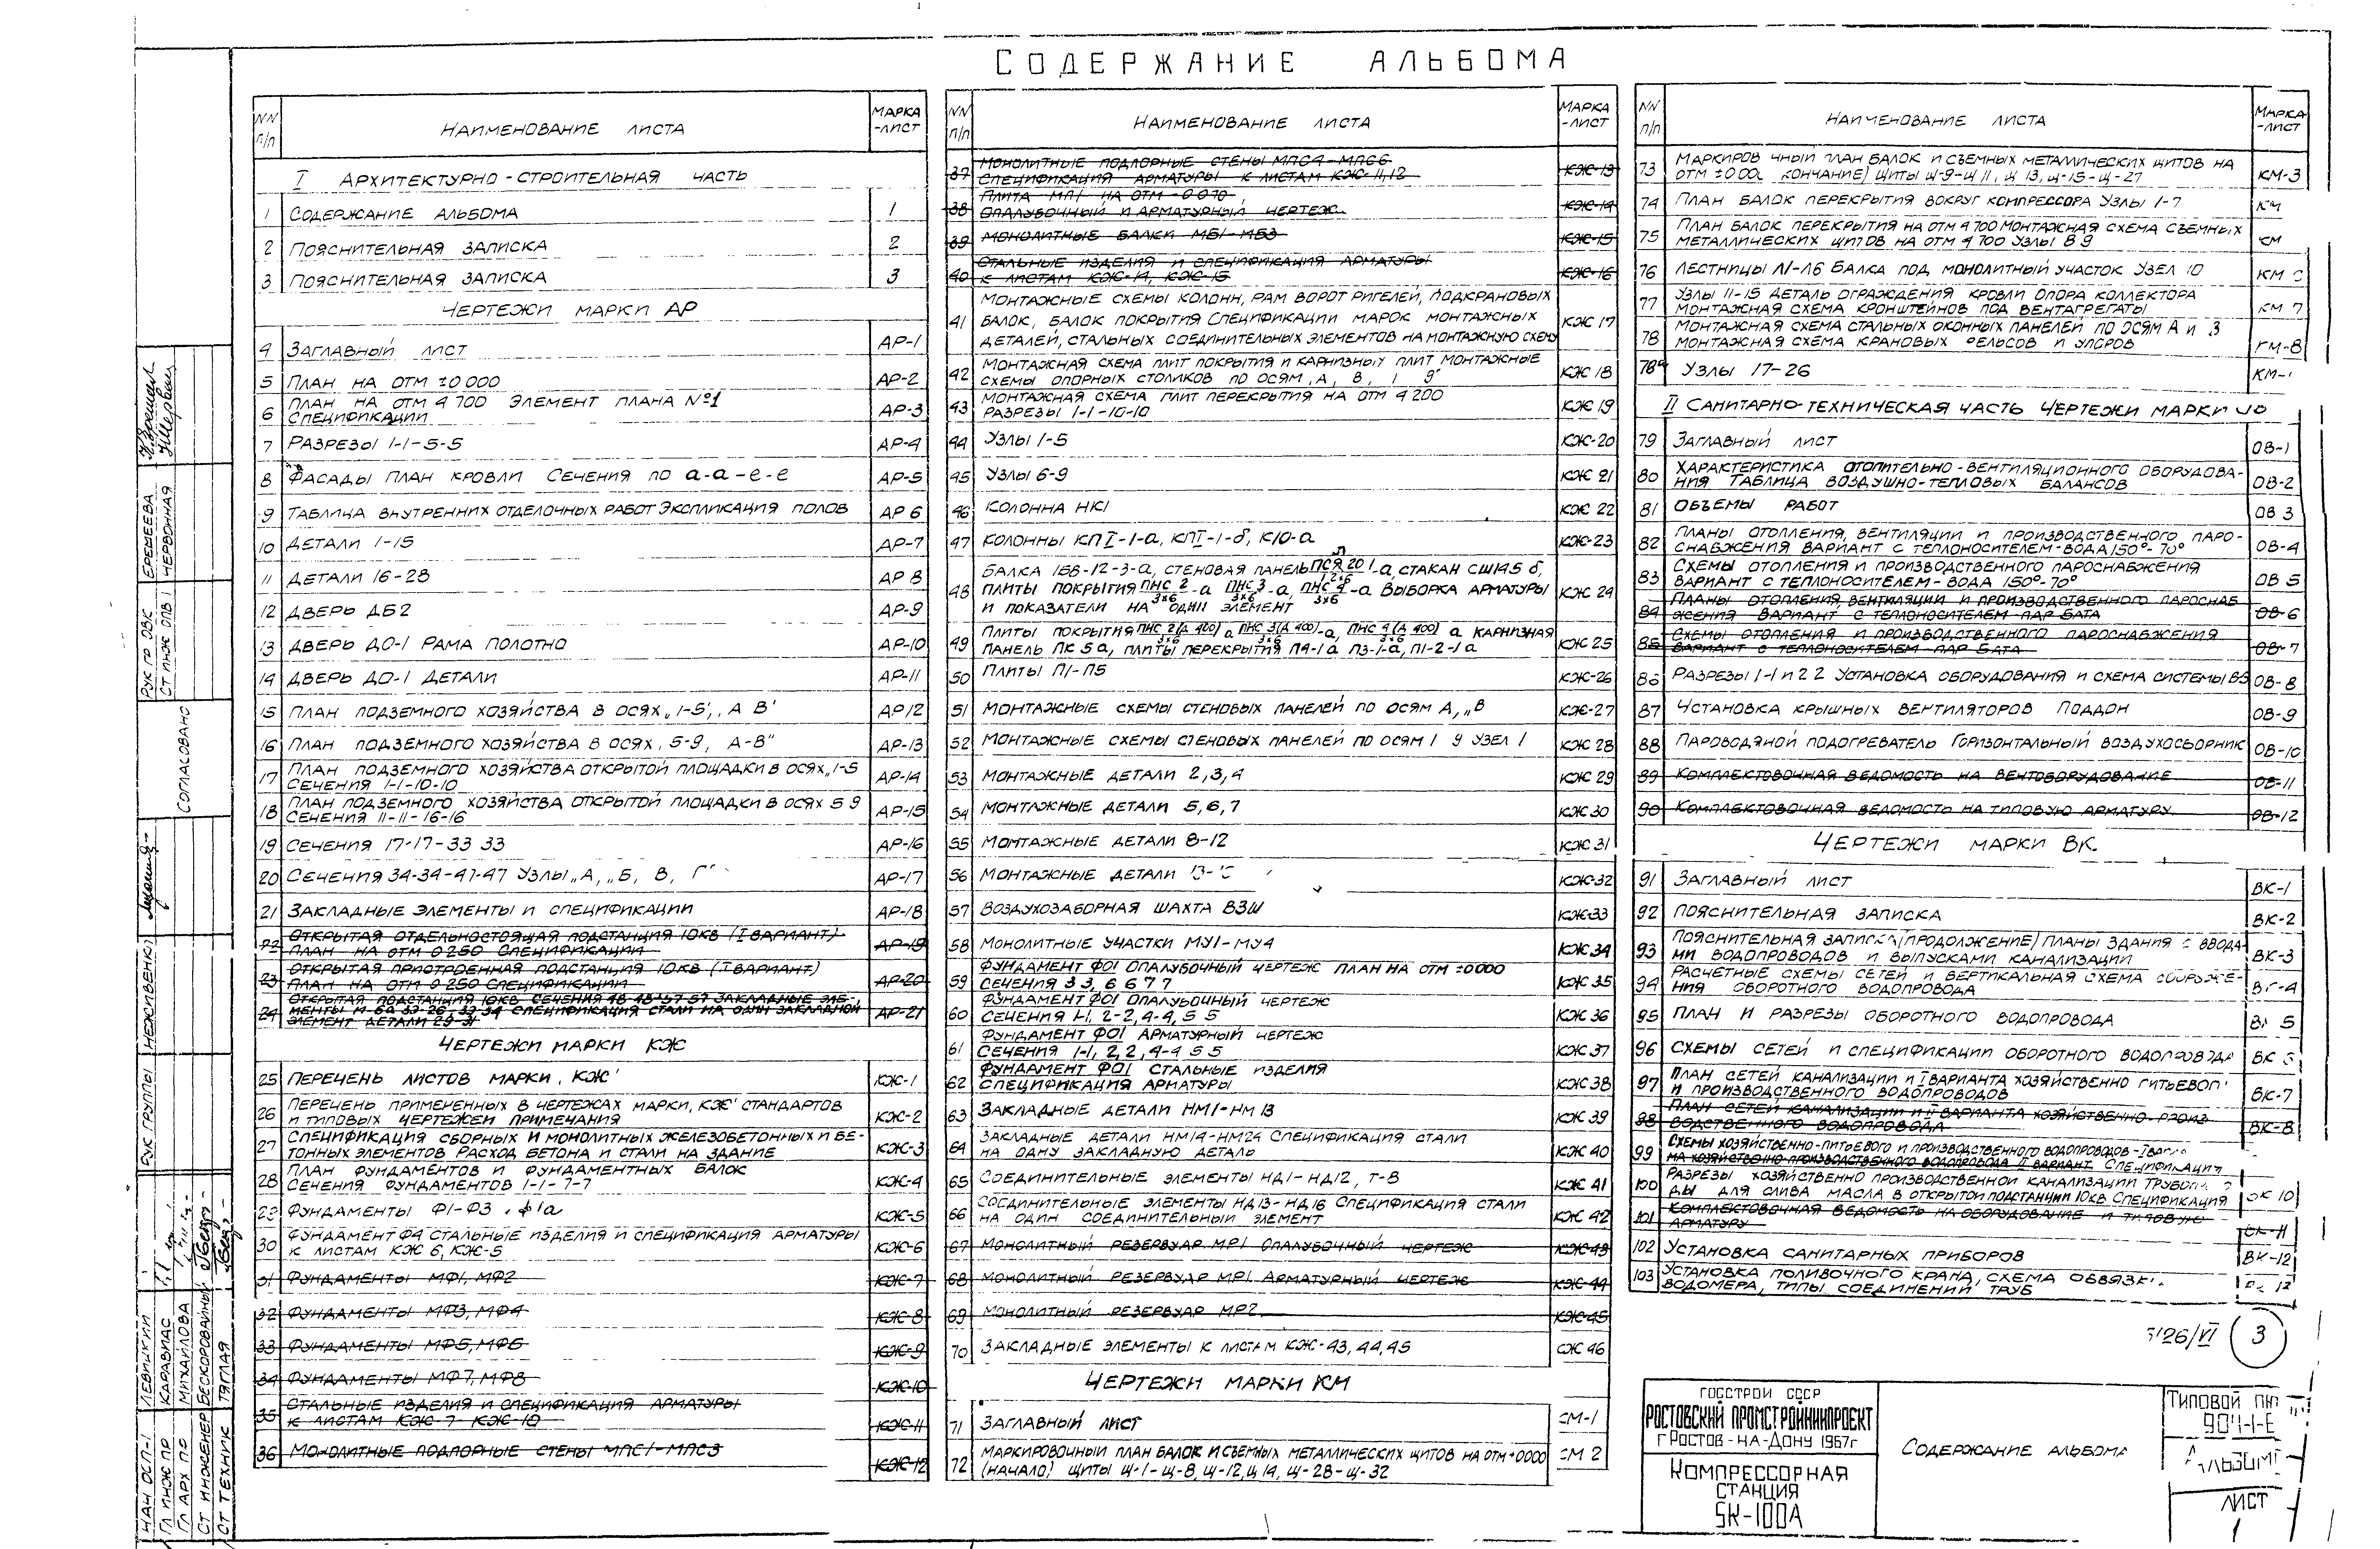 СОДЕРЖАНИЕ АЛЬБОМА
NN п/п НАИМЕНОВАНИЕ ЛИСТА МАРКА -ЛИСТ
I АРХИТЕКТУРНО-СТРОИТЕЛЬНАЯ ЧАСТЬ
1 СОДЕРЖАНИЕ АЛЬБОМА 1
2 ПОЯСНИТЕЛЬНАЯ ЗАПИСКА 2
3 ПОЯСНИТЕЛЬНАЯ ЗАПИСКА 3
ЧЕРТЕЖИ МАРКИ АР
4 ЗАГЛАВНЫЙ ЛИСТ АР-1
5 ПЛАН НА ОТМ ±0 000 АР-2
6 ПЛАН НА ОТМ 4 700 ЭЛЕМЕНТ ПЛАНА №1
СПЕЦИФИКАЦИИ АР-3
7 РАЗРЕЗЫ 1-1-5-5 АР-4
8 ФАСАДЫ ПЛАН КРОВЛИ СЕЧЕНИЯ ПО а-а-е-е АР-5
9 ТАБЛИЦА ВНУТРЕННИХ ОТДЕЛОЧНЫХ РАБОТ ЭКСПЛИКАЦИЯ ПОЛОВ АР 6
10 ДЕТАЛИ 1-15 АР-7
11 ДЕТАЛИ 16-28 АР 8
12 ДВЕРЬ ДБ2 АР-9
13 ДВЕРЬ ДО-1 РАМА ПОЛОТНО АР-10
14 ДВЕРЬ ДО-1 ДЕТАЛИ АР-11
15 ПЛАН ПОДЗЕМНОГО ХОЗЯЙСТВА В ОСЯХ „1-5‛, „А В‛ АР12
16 ПЛАН ПОДЗЕМНОГО ХОЗЯЙСТВА В ОСЯХ „5-9, А-В" АР-13
17 ПЛАН ПОДЗЕМНОГО ХОЗЯЙСТВА ОТКРЫТОЙ ПЛОЩАДКИ В ОСЯХ „1-5
СЕЧЕНИЯ 1-1-10-10 АР-14
18 ПЛАН ПОДЗЕМНОГО ХОЗЯЙСТВА ОТКРЫТОЙ ПЛОЩАДКИ В ОСЯХ 5 9
СЕЧЕНИЯ 11-11-16-16 АР-15
19 СЕЧЕНИЯ 17-17-33 33 АР-16
20 СЕЧЕНИЯ 34-34-47-47 УЗЛЫ „А, „Б, В, Г АР-17
21 ЗАКЛАДНЫЕ ЭЛЕМЕНТЫ И СПЕЦИФИКАЦИИ АР-18
22 ОТКРЫТАЯ ОТДЕЛЬНОСТОЯЩАЯ ПОДСТАНЦИЯ 10КВ (I ВАРИАНТ)
ПЛАН НА ОТМ 0 250 СПЕЦИФИКАЦИИ АР-19
23 ОТКРЫТАЯ ПРИСТРОЕННАЯ ПОДСТАНЦИЯ 10КВ (I ВАРИАНТ)
ПЛАН НА ОТМ 0 250 СПЕЦИФИКАЦИИ АР-20
24 ОТКРЫТАЯ ПОДСТАНЦИЯ 10КВ СЕЧЕНИЯ 48 48-57 57 ЗАКЛАДНЫЕ ЭЛЕ-
СПЕЦИФИКАЦИЯ СТАЛИ НА ОДИН ЗАКЛАДНОЙ
ЭЛЕМЕНТ ДЕТАЛИ 29-31 АР-21
ЧЕРТЕЖИ МАРКИ КЖ
25 ПЕРЕЧЕНЬ ЛИСТОВ МАРКИ „КЖ‛ КЖ-1
26 ПЕРЕЧЕНЬ ПРИМЕНЕННЫХ В ЧЕРТЕЖАХ МАРКИ „КЖ‛ СТАНДАРТОВ
И ТИПОВЫХ ЧЕРТЕЖЕЙ ПРИМЕЧАНИЯ КЖ-2
27 СПЕЦИФИКАЦИЯ СБОРНЫХ И МОНОЛИТНЫХ ЖЕЛЕЗОБЕТОННЫХ И БЕ-
ТОННЫХ ЭЛЕМЕНТОВ РАСХОД БЕТОНА И СТАЛИ НА ЗДАНИЕ КЖ-3
28 ПЛАН ФУНДАМЕНТОВ И ФУНДАМЕНТНЫХ БАЛОК
СЕЧЕНИЯ ФУНДАМЕНТОВ 1-1-7-7 КЖ-4
29 ФУНДАМЕНТЫ Ф1-Ф3, Ф1а КЖ-5
30 ФУНДАМЕНТ Ф4 СТАЛЬНЫЕ ИЗДЕЛИЯ И СПЕЦИФИКАЦИЯ АРМАТУРЫ
К ЛИСТАМ КЖ 6, КЖ-5 КЖ-6
31 ФУНДАМЕНТЫ МФ1, МФ2 КЖ-7
32 ФУНДАМЕНТЫ МФ3, МФ4 КЖ-8
33 ФУНДАМЕНТЫ МФ5, МФ6 КЖ-9
34 ФУНДАМЕНТЫ МФ7, МФ8 КЖ-10
35 СТАЛЬНЫЕ ИЗДЕЛИЯ И СПЕЦИФИКАЦИЯ АРМАТУРЫ
К ЛИСТАМ КЖ-7 КЖ-10 КЖ-11
36 МОНОЛИТНЫЕ ПОДПОРНЫЕ СТЕНЫ МПС1-МПС3 КЖ-12
NN п/п НАИМЕНОВАНИЕ ЛИСТА МАРКА -ЛИСТ
37 МОНОЛИТНЫЕ ПОДПОРНЫЕ СТЕНЫ МПС4-МПС6
СПЕЦИФИКАЦИЯ АРМАТУРЫ К ЛИСТАМ КЖ-11,12 КЖ-13
38 ПЛИТА МП1 НА ОТМ -0 070
ОПАЛУБОЧНЫЙ И АРМАТУРНЫЙ ЧЕРТЕЖ КЖ-14
39 МОНОЛИТНЫЕ БАЛКИ МБ1-МБ3 КЖ-15
40 СТАЛЬНЫЕ ИЗДЕЛИЯ И СПЕЦИФИКАЦИЯ АРМАТУРЫ
К ЛИСТАМ КЖ-14, КЖ-15 КЖ-16
41 МОНТАЖНЫЕ СХЕМЫ КОЛОНН, РАМ ВОРОТ РИГЕЛЕЙ, ПОДКРАНОВЫХ
БАЛОК, БАЛОК ПОКРЫТИЯ СПЕЦИФИКАЦИИ МАРОК МОНТАЖНЫХ
ДЕТАЛЕЙ, СТАЛЬНЫХ СОЕДИНИТЕЛЬНЫХ ЭЛЕМЕНТОВ НА МОНТАЖНУЮ СХЕМУ КЖ 17
42 МОНТАЖНАЯ СХЕМА ПЛИТ ПОКРЫТИЯ И КАРНИЗНЫХ ПЛИТ МОНТАЖНЫЕ
СХЕМЫ ОПОРНЫХ СТОЛИКОВ ПО ОСЯМ „А, В, 1 9" КЖ 18
43 МОНТАЖНАЯ СХЕМА ПЛИТ ПЕРЕКРЫТИЯ НА ОТМ 4 200
РАЗРЕЗЫ 1-1-10-10 КЖ 19
44 УЗЛЫ 1-5 КЖ-20
45 УЗЛЫ 6-9 КЖ 21
46 КОЛОННА НК1 КЖ 22
47 КОЛОННЫ КПI-1-а, КПI-1-б, К10-а КЖ-23
48 БАЛКА 1ББ-12-3-а, СТЕНОВАЯ ПАНЕЛЬ ПСЯ 20 1-а, СТАКАН СШ14 5 б,
ПЛИТЫ ПОКРЫТИЯ ПНС 2/3×6-а ПНС 3/3×6-а, ПНС 4/3×6-а ВЫБОРКА АРМАТУРЫ
И ПОКАЗАТЕЛИ НА ОДИН ЭЛЕМЕНТ КЖ 24
49 ПЛИТЫ ПОКРЫТИЯ ПНС 2(Д 400)/3×6 а ПНС 3(Д 400)/3×6-а, ПНС 4(Д 400)/3×6 а КАРНИЗНАЯ
ПАНЕЛЬ ПК 5а, ПЛИТЫ ПЕРЕКРЫТИЯ П4-1а П3-1-а, П1-2-1а КЖ 25
50 ПЛИТЫ П1-П5 КЖ-26
51 МОНТАЖНЫЕ СХЕМЫ СТЕНОВЫХ ПАНЕЛЕЙ ПО ОСЯМ А, „В КЖ-27
52 МОНТАЖНЫЕ СХЕМЫ СТЕНОВЫХ ПАНЕЛЕЙ ПО ОСЯМ 1 9 УЗЕЛ 1 КЖ 28
53 МОНТАЖНЫЕ ДЕТАЛИ 2,3,4 КЖ 29
54 МОНТАЖНЫЕ ДЕТАЛИ 5,6,7 КЖ 30
55 МОНТАЖНЫЕ ДЕТАЛИ 8-12 КЖ 31
56 МОНТАЖНЫЕ ДЕТАЛИ КЖ-32
57 ВОЗДУХОЗАБОРНАЯ ШАХТА ВЗШ КЖ-33
58 МОНОЛИТНЫЕ УЧАСТКИ МУ1-МУ4 КЖ 34
59 ФУНДАМЕНТ ФО1 ОПАЛУБОЧНЫЙ ЧЕРТЕЖ ПЛАН НА ОТМ ±0 000
СЕЧЕНИЯ 3 3, 6 6 7 7 КЖ 35
60 ФУНДАМЕНТ ФО1 ОПАЛУБОЧНЫЙ ЧЕРТЕЖ
СЕЧЕНИЯ 1-1, 2-2, 4-4, 5 5 КЖ 36
61 ФУНДАМЕНТ ФО1 АРМАТУРНЫЙ ЧЕРТЕЖ
СЕЧЕНИЯ 1-1, 2,2, 4-4 5 5 КЖ 37
62 ФУНДАМЕНТ ФО1 СТАЛЬНЫЕ ИЗДЕЛИЯ
СПЕЦИФИКАЦИЯ АРМАТУРЫ КЖ 38
63 ЗАКЛАДНЫЕ ДЕТАЛИ НМ1-НМ 13 КЖ 39
64 ЗАКЛАДНЫЕ ДЕТАЛИ НМ14-НМ24 СПЕЦИФИКАЦИЯ СТАЛИ
НА ОДНУ ЗАКЛАДНУЮ ДЕТАЛЬ КЖ 40
65 СОЕДИНИТЕЛЬНЫЕ ЭЛЕМЕНТЫ НД1-НД12, Т-8 КЖ 41
66 СОЕДИНИТЕЛЬНЫЕ ЭЛЕМЕНТЫ НД13-НД16 СПЕЦИФИКАЦИЯ СТАЛИ
НА ОДИН СОЕДИНИТЕЛЬНЫЙ ЭЛЕМЕНТ КЖ 42
67 МОНОЛИТНЫЙ РЕЗЕРВУАР МР1 ОПАЛУБОЧНЫЙ ЧЕРТЕЖ КЖ-43
68 МОНОЛИТНЫЙ РЕЗЕРВУАР МР1 АРМАТУРНЫЙ ЧЕРТЕЖ КЖ-44
69 МОНОЛИТНЫЙ РЕЗЕРВУАР МР2 КЖ-45
70 ЗАКЛАДНЫЕ ЭЛЕМЕНТЫ К ЛИСТАМ КЖ-43, 44,45 КЖ 46
ЧЕРТЕЖИ МАРКИ КМ
71 ЗАГЛАВНЫЙ ЛИСТ КМ-1
72 МАРКИРОВОЧНЫЙ ПЛАН БАЛОК И СЪЕМНЫХ МЕТАЛЛИЧЕСКИХ ЩИТОВ НА ОТМ ±0000
(НАЧАЛО) ЩИТЫ Щ-1-Щ-8, Щ-12, Щ 14, Щ-28-Щ-32 КМ 2
NN п/п НАИМЕНОВАНИЕ ЛИСТА МАРКА -ЛИСТ
73 МАРКИРОВ ЧНЫЙ ПЛАН БАЛОК И СЪЕМНЫХ МЕТАЛЛИЧЕСКИХ ЩИТОВ НА
ОТМ ±0 00 КОНЧАНИЕ) ЩИТЫ Щ-9-Щ 11, Щ 13, Щ-15-Щ-27 КМ-3
74 ПЛАН БАЛОК ПЕРЕКРЫТИЯ ВОКРУГ КОМПРЕССОРА УЗЛЫ 1-7 КМ
75 ПЛАН БАЛОК ПЕРЕКРЫТИЯ НА ОТМ 4 700 МОНТАЖНАЯ СХЕМА СЪЕМНЫХ
МЕТАЛЛИЧЕСКИХ ЩИТОВ НА ОТМ 4 700 УЗЛЫ 8 9 КМ
76 ЛЕСТНИЦЫ Л1-Л6 БАЛКА ПОД МОНОЛИТНЫЙ УЧАСТОК УЗЕЛ 10 КМ
77 УЗЛЫ 11-15 ДЕТАЛЬ ОГРАЖДЕНИЯ КРОВЛИ ОПОРА КОЛЛЕКТОРА
МОНТАЖНАЯ СХЕМА КРОНШТЕЙНОВ ПОД ВЕНТАГРЕГАТЫ КМ 7
78 МОНТАЖНАЯ СХЕМА СТАЛЬНЫХ ОКОННЫХ ПАНЕЛЕЙ ПО ОСЯМ А И
МОНТАЖНАЯ СХЕМА КРАНОВЫХ РЕЛЬСОВ И УПОРОВ КМ-8
78а УЗЛЫ 17-26 КМ-
II САНИТАРНО-ТЕХНИЧЕСКАЯ ЧАСТЬ ЧЕРТЕЖИ МАРКИ ОВ
79 ЗАГЛАВНЫЙ ЛИСТ ОВ-1
80 ХАРАКТЕРИСТИКА ОТОПИТЕЛЬНО-ВЕНТИЛЯЦИОННОГО ОБОРУДОВА-
НИЯ ТАБЛИЦА ВОЗДУШНО-ТЕПЛОВЫХ БАЛАНСОВ ОВ-2
81 ОБЪЕМЫ РАБОТ ОВ 3
82 ПЛАНЫ ОТОПЛЕНИЯ, ВЕНТИЛЯЦИИ И ПРОИЗВОДСТВЕННОГО ПАРО-
СНАБЖЕНИЯ ВАРИАНТ С ТЕПЛОНОСИТЕЛЕМ-ВОДА 150°-70° ОВ-4
83 СХЕМЫ ОТОПЛЕНИЯ И ПРОИЗВОДСТВЕННОГО ПАРОСНАБЖЕНИЯ
ВАРИАНТ С ТЕПЛОНОСИТЕЛЕМ-ВОДА 150°-70° ОВ 5
84 ПЛАНЫ ОТОПЛЕНИЯ, ВЕНТИЛЯЦИИ И ПРОИЗВОДСТВЕННОГО ПАРОСНАБ
ЖЕНИЯ ВАРИАНТ С ТЕПЛОНОСИТЕЛЕМ ПАР 6АТА ОВ-6
85 СХЕМЫ ОТОПЛЕНИЯ И ПРОИЗВОДСТВЕННОГО ПАРОСНАБЖЕНИЯ
ВАРИАНТ С ТЕПЛОНОСИТЕЛЕМ ПАР 6АТА ОВ-7
86 РАЗРЕЗЫ 1-1 И 2 2 УСТАНОВКА ОБОРУДОВАНИЯ И СХЕМА СИСТЕМЫ В5 ОВ-8
87 УСТАНОВКА КРЫШНЫХ ВЕНТИЛЯТОРОВ ПОДДОН ОВ-9
88 ПАРОВОДЯНОЙ ПОДОГРЕВАТЕЛЬ ГОРИЗОНТАЛЬНЫЙ ВОЗДУХОСБОРНИК ОВ-10
89 КОМПЛЕКТОВОЧНАЯ ВЕДОМОСТЬ НА ВЕНТОБОРУДОВАНИЕ ОВ-11
90 КОМПЛЕКТОВОЧНАЯ ВЕДОМОСТЬ НА ТИПОВУЮ АРМАТУРУ ОВ-12
ЧЕРТЕЖИ МАРКИ ВК.
91 ЗАГЛАВНЫЙ ЛИСТ ВК-1
92 ПОЯСНИТЕЛЬНАЯ ЗАПИСКА ВК-2
93 ПОЯСНИТЕЛЬНАЯ ЗАПИСКА (ПРОДОЛЖЕНИЕ) ПЛАНЫ ЗДАНИЯ С ВВОДА-
МИ ВОДОПРОВОДОВ И ВЫПУСКАМИ КАНАЛИЗАЦИИ ВК-3
94 РАСЧЕТНЫЕ СХЕМЫ СЕТЕЙ И ВЕРТИКАЛЬНАЯ СХЕМА СООРУЖЕ-
НИЯ ОБОРОТНОГО ВОДОПРОВОДА ВК-4
95 ПЛАН И РАЗРЕЗЫ ОБОРОТНОГО ВОДОПРОВОДА ВК 5
96 СХЕМЫ СЕТЕЙ И СПЕЦИФИКАЦИИ ОБОРОТНОГО ВОДОПРОВОДА ВК 6
97 ПЛАН СЕТЕЙ КАНАЛИЗАЦИИ И I ВАРИАНТА ХОЗЯЙСТВЕННО ПИТЬЕВОГО
И ПРОИЗВОДСТВЕННОГО ВОДОПРОВОДОВ ВК-7
98 ПЛАН СЕТЕЙ КАНАЛИЗАЦИИ И II ВАРИАНТА ХОЗЯЙСТВЕННО-ПРОИЗ
ВОДСТВЕННОГО ВОДОПРОВОДА ВК-8
99 СХЕМЫ ХОЗЯЙСТВЕННО-ПИТЬЕВОГО И ПРОИЗВОДСТВЕННОГО ВОДОПРОВОДОВ-I
ХОЗЯЙСТВЕННО-ПРОИЗВОДСТВЕННОГО ВОДОПРОВОДА II ВАРИАНТ СПЕЦИФИКАЦИЯ
100 РАЗРЕЗЫ ХОЗЯЙСТВЕННО ПРОИЗВОДСТВЕННОЙ КАНАЛИЗАЦИИ
ДЫ ДЛЯ СЛИВА МАСЛА В ОТКРЫТОЙ ПОДСТАНЦИИ 10КВ СПЕЦИФИКАЦИЯ ВК 10
101 КОМПЛЕКТОВОЧНАЯ ВЕДОМОСТЬ НА ОБОРУДОВАНИЕ И ТИПОВУЮ
АРМАТУРУ ВК-11
102 УСТАНОВКА САНИТАРНЫХ ПРИБОРОВ ВК-12
103 УСТАНОВКА ПОЛИВОЧНОГО КРАНА, СХЕМА ОБВЯЗКИ
ВОДОМЕРА, ТИПЫ СОЕДИНЕНИЙ ТРУБ
126/VI 3
ГОССТРОЙ СССР
РОСТОВСКИЙ ПРОМСТРОЙНИИПРОЕКТ
Г РОСТОВ-НА-ДОНУ 1967г
КОМПРЕССОРНАЯ
СТАНЦИЯ
5К-100А
СОДЕРЖАНИЕ АЛЬБОМА
ТИПОВОЙ
904-1-
ЛИСТ
1
СОГЛАСОВАНО
РУК ГР ОВС ЕРЕМЕЕВА
СТ ИНЖ ОПВ1 ЧЕРВОННАЯ
РУК ГРУППЫ НЕЖИВЕНКО
НАЧ ОСП-1 ЛЕВИЦКИЙ
ГЛ ИНЖ ПР КАРАВИАС
ГЛ АРХ ПР МИХАЙЛОВА
СТ ИНЖЕНЕР БЕСКОРОВАЙНЫЙ
СТ ТЕХНИК ТЯГЛАЯ